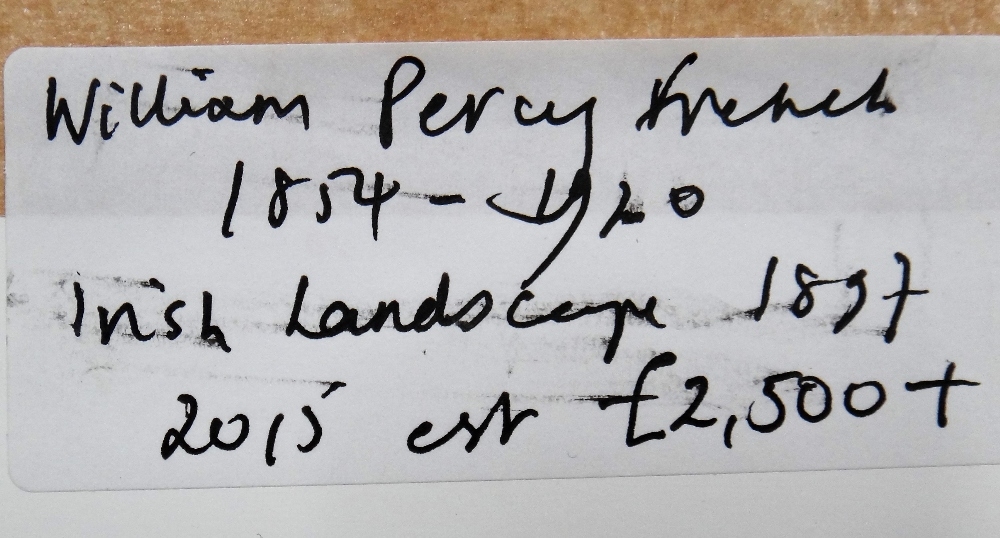 William Percy French
1854 - 1920
Irish Landscape 1897
2015 est £2,500+